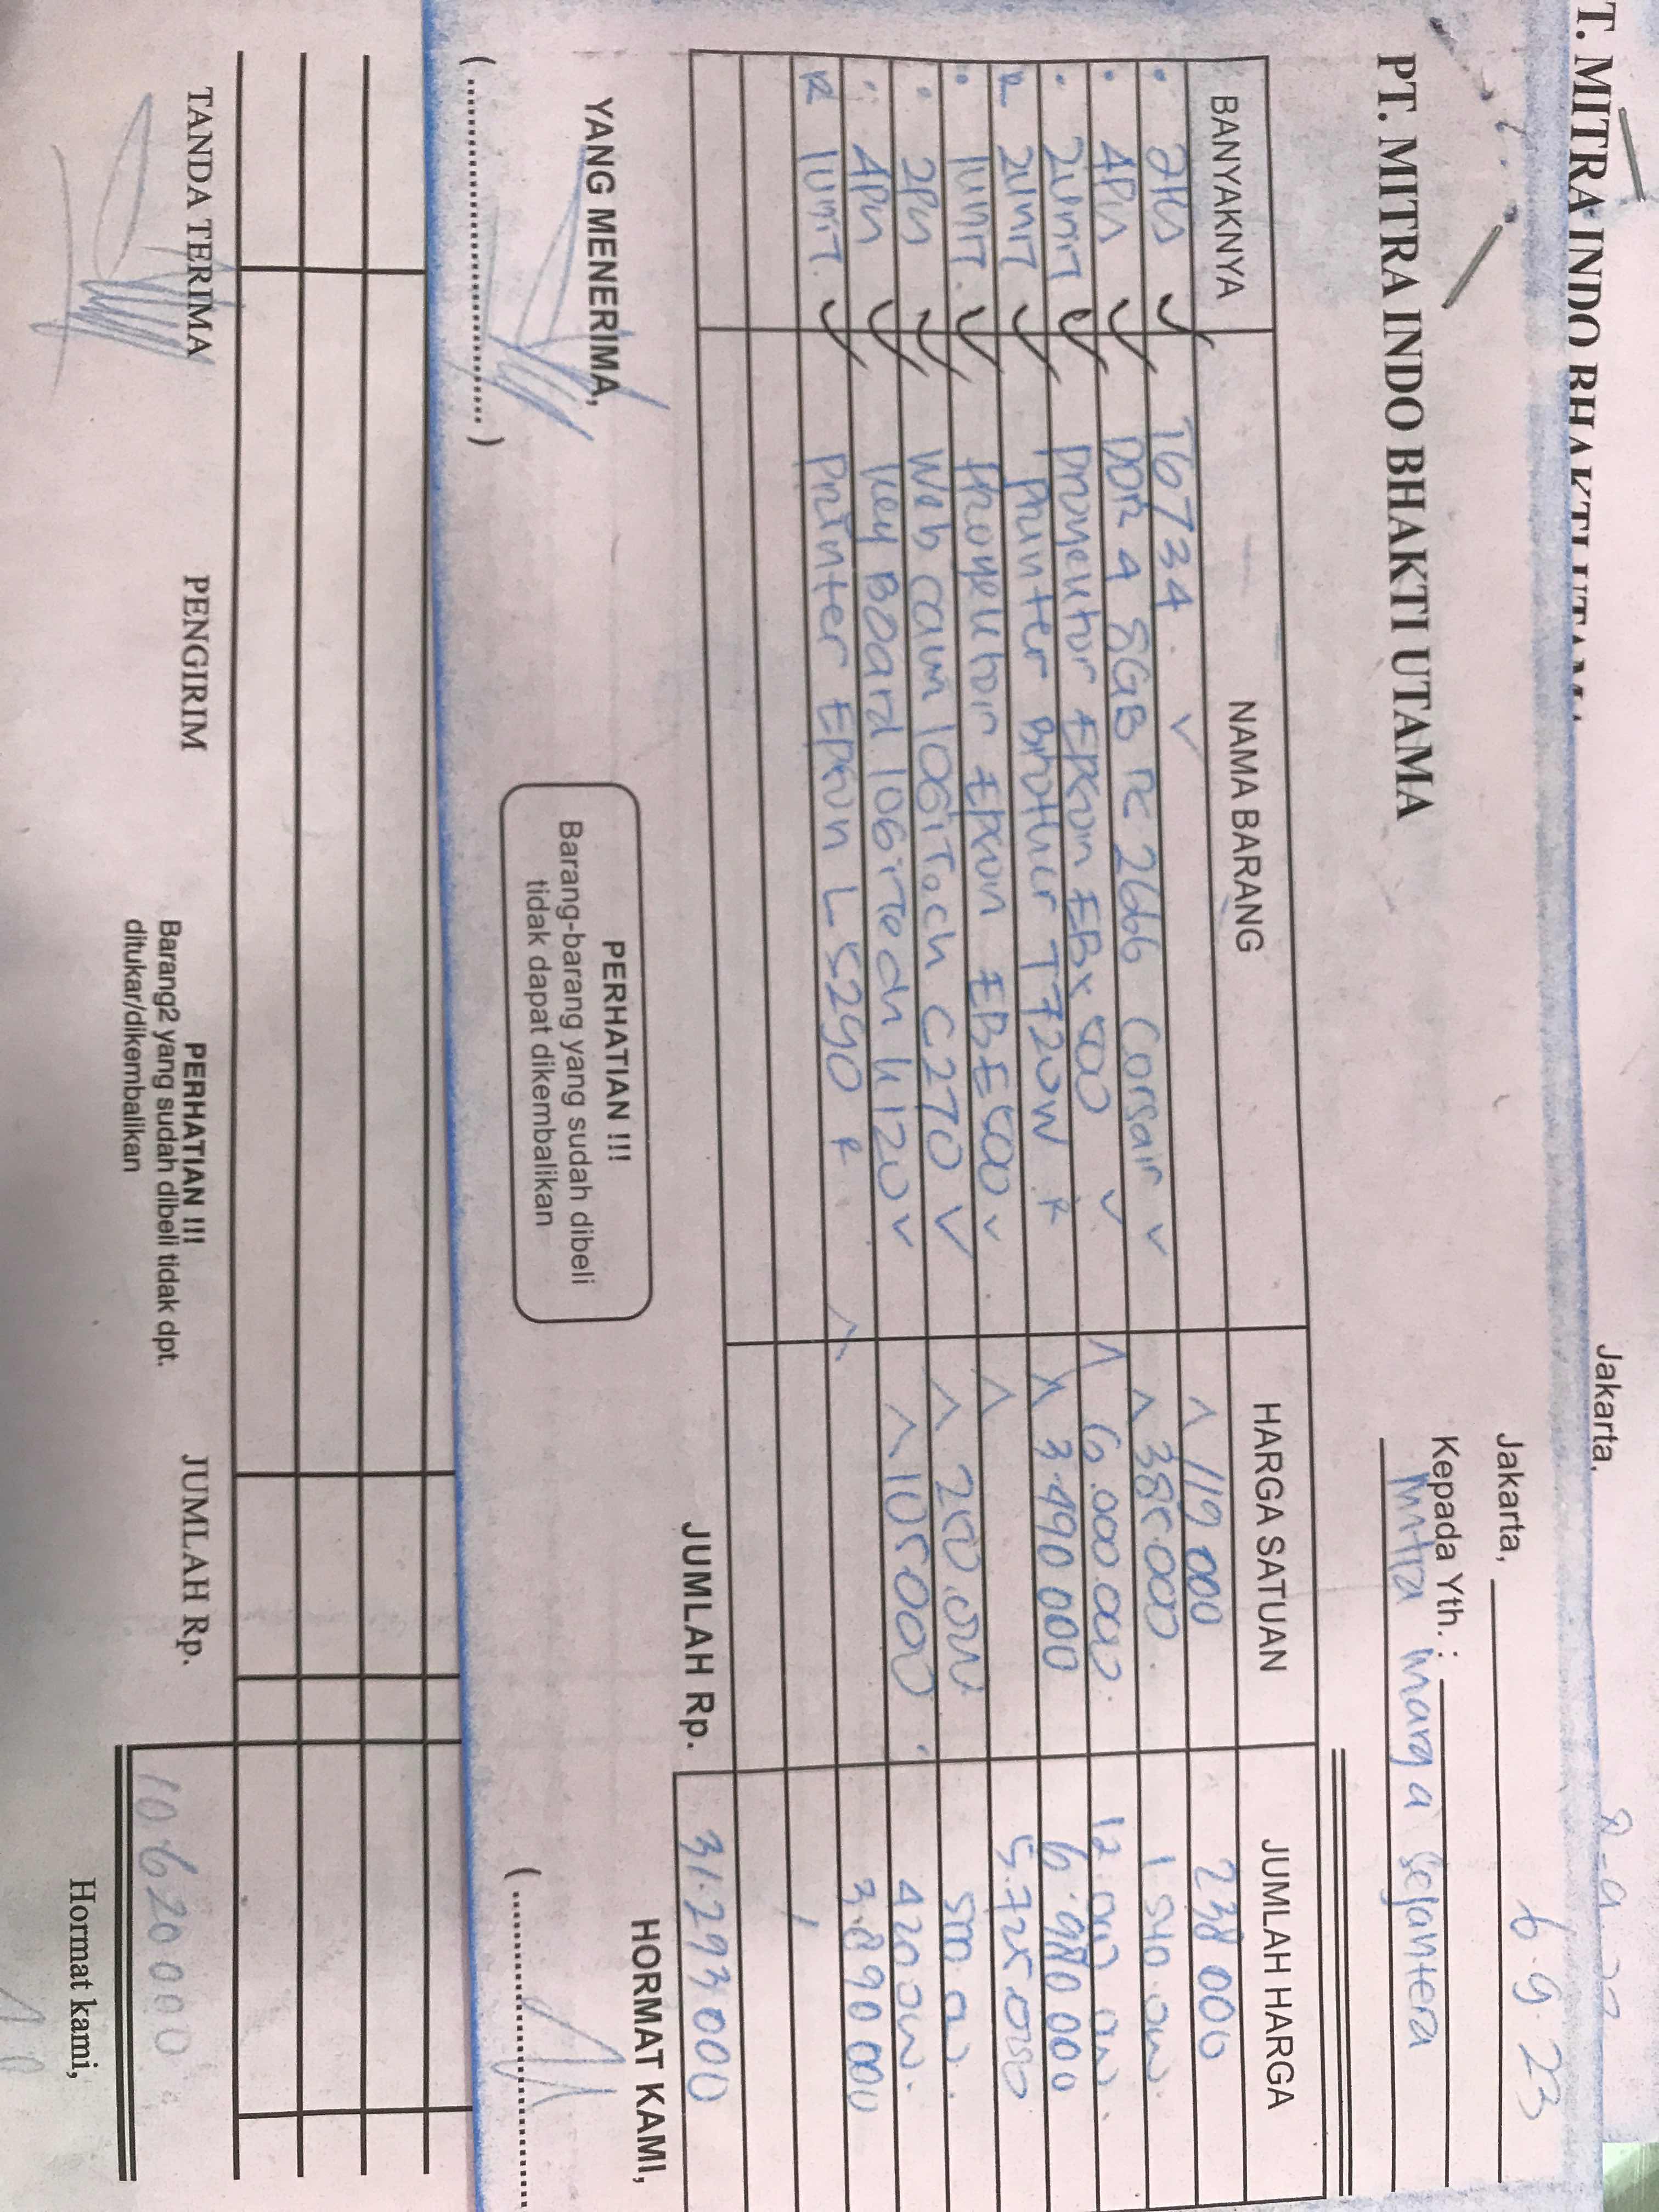 T. MITRA INDO BHAKTI UTAMA
Jakarta,
PT. MITRA INDO BHAKTI UTAMA
Jakarta, 6.9.23
Kepada Yth. :
Mitra marga sejantera
BANYAKNYA NAMA BARANG HARGA SATUAN JUMLAH HARGA
2Pcs T6734 119 000 238 000
4Pcs DDR 4 8GB PC 2666 Corsair 385.000 1 540.000
2unit Proyektor Epson EBX 500 6.000.000 12.000.000
2unit Printer Brother T720W 3.490 000 6.980 000
1unit Proyektor Epson EBE500 5.725.000
2Pcs Web cam logitech C270 250.000 500.000
4Pcs Key Board logitech K120 105.000 420.000
1unit Printer Epson L 5290 3.890 000
YANG MENERIMA,
PERHATIAN !!!
Barang-barang yang sudah dibeli
tidak dapat dikembalikan
JUMLAH Rp. 31.293 000
HORMAT KAMI,
TANDA TERIMA PENGIRIM
PERHATIAN !!!
Barang2 yang sudah dibeli tidak dpt.
ditukar/dikembalikan
JUMLAH Rp. 10 620 000
Hormat kami,